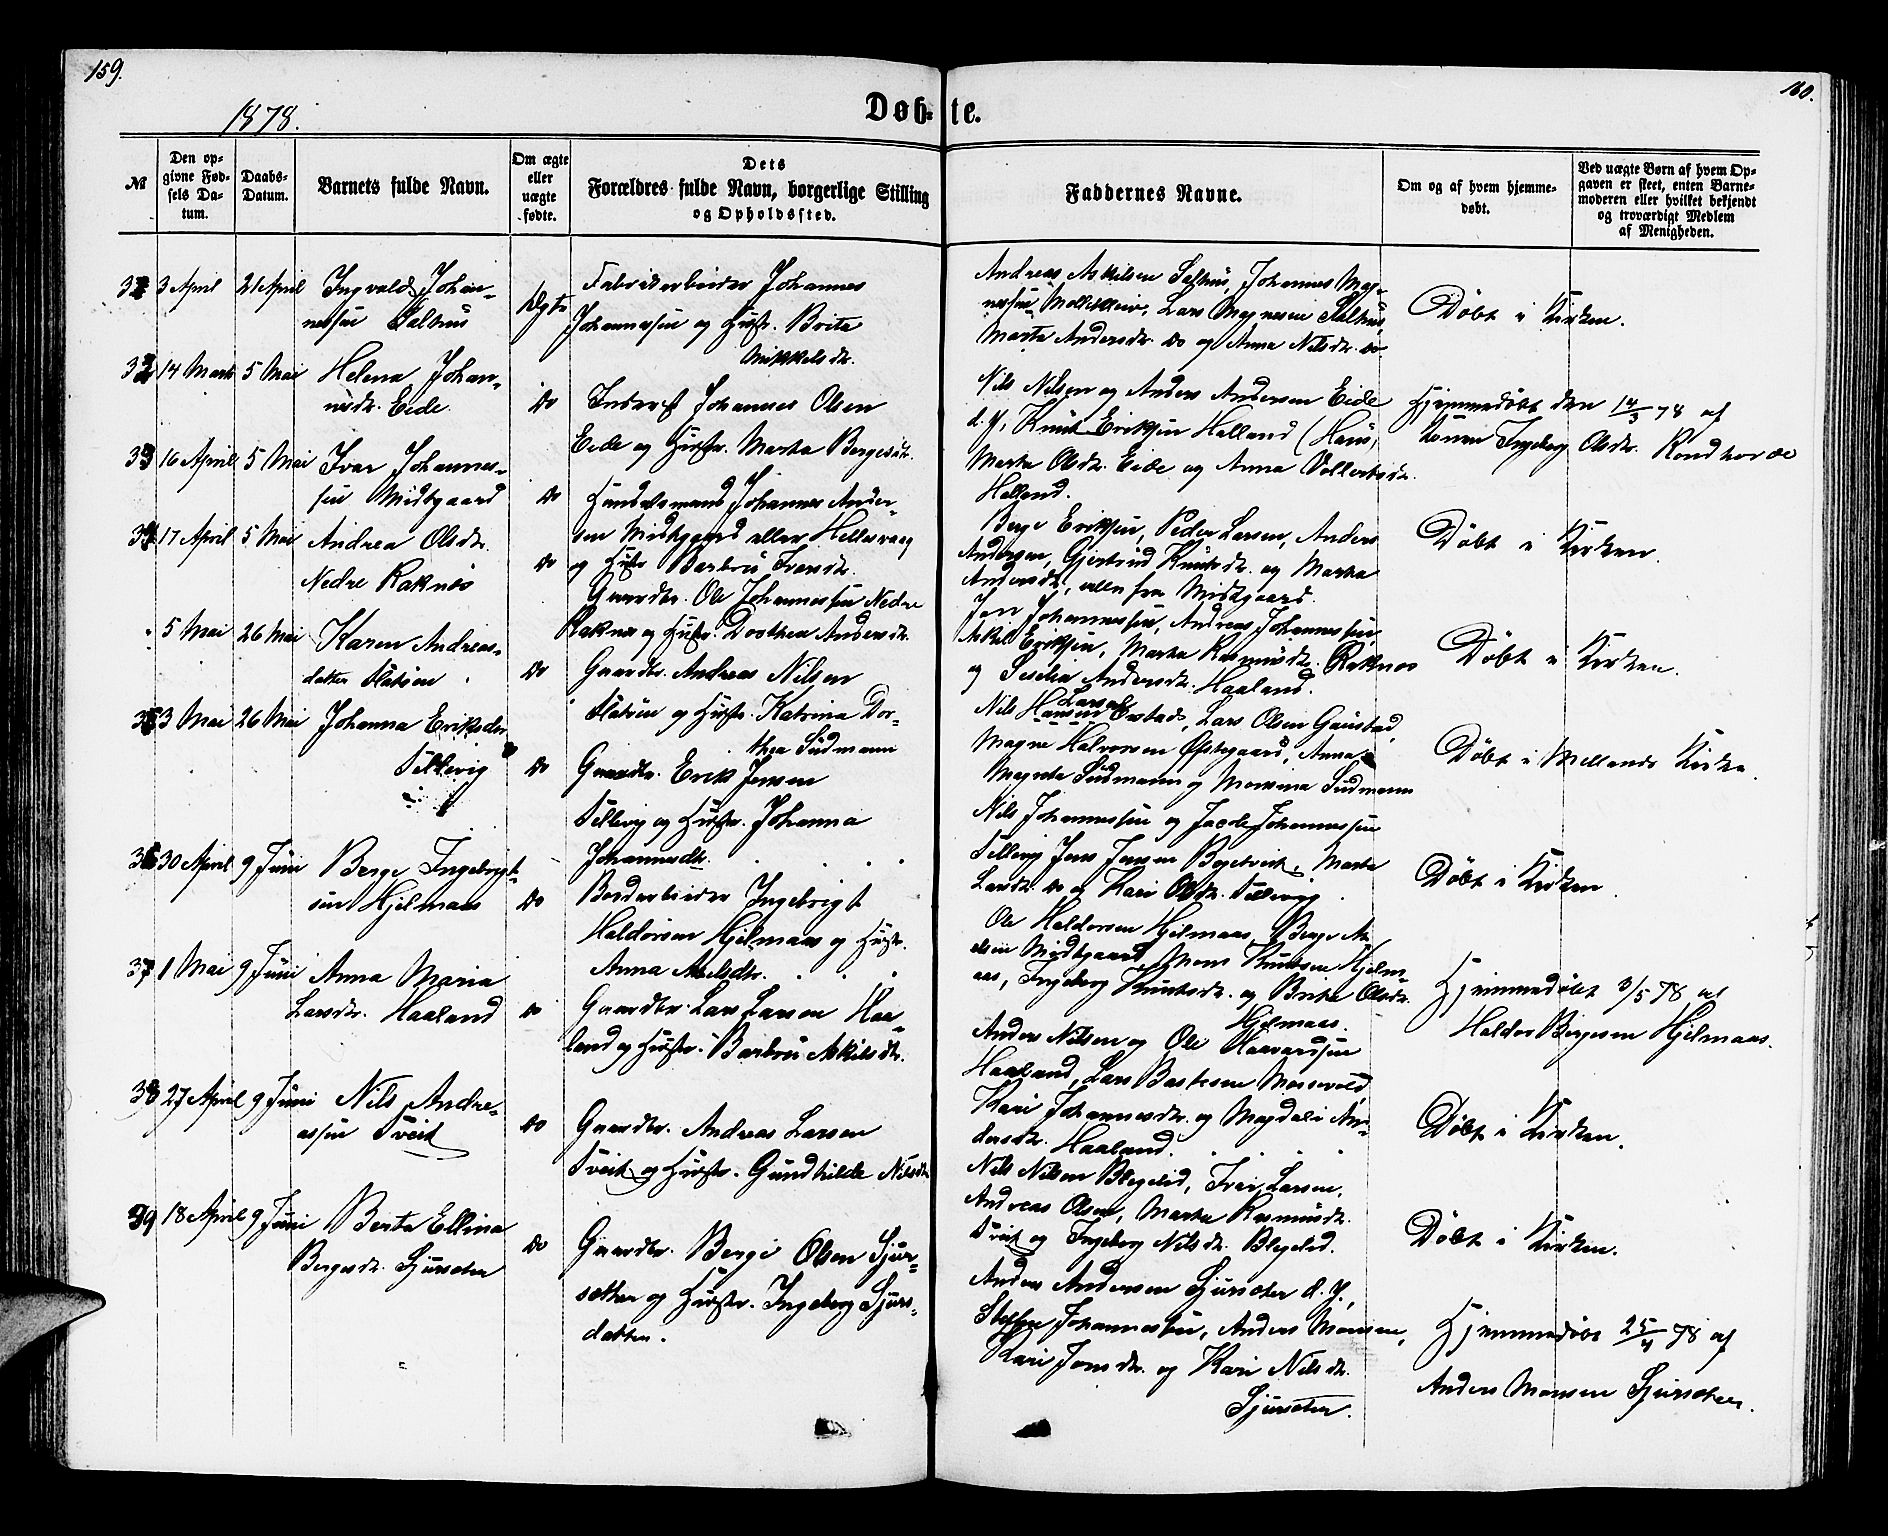 159.
160.
1878.
Døb-te.
№
Den op-
givne Fød-
sels Da-
tum.
Daabs-
Datum.
Barnets fulde Navn.
Om ægte
eller
uægte
fødte.
Dets
Forældres fulde Navn, borgerlige Stilling
og Opholdssted.
Faddernes Navne.
Om og af hvem hjemme-
døbt.
Ved uægte Børn af hvem Op-
gaven er skeet, enten Barne-
moderen eller hvilket bekjendt
og troværdigt Medlem
af Menigheden.
3 April 21 April Ingvald Johan-
nessen Salhus
Ægte
Fabrikarbeider Johannes
Johannessen og Hustr. Brita
Mikkelsdr.
Andreas Askilsen Salhus, Johannes Mag-
nessen, Lars Magnesen Salhus,
Marta Andersdr. Do og Anna Nilsdr. Do
Døbt i Kirken.
32 14 Marts 5 Mai Helena Johan-
nesdr. Eide.
Do
Inderst Johannes Olsen
Eide og Hustr. Marta Bergesdr.
Nils Nilsen og Anders Andersen Eide
d. y., Knut Eriksen Helland (Haus),
Marta Olsdr. Eide og Anna
Helland.
Hjemmedøbt den 14/3 78 af
Konen Ingeborg Olsdr. Rondhovde
33 16 April 5 Mai Ivar Johannes-
sen Midtgaard
Do
Handelsmand Johannes Ander-
sen Midtgaard eller Hellesvaag
og Hustr. Barbru Iversdr.
Berge Eriksen, Peder Larsen, Anders
Andersen, Gjertrud Knutsdr. og Marta
Andersdr., alle fra Midtgaard.
Døbt i Kirken.
34 17 April 5 Mai Andrea Olsdr.
Nedre Raknes
Do
Gaardbr. Ole Johannessen Nedre
Raknes og Hustr. Dorthea Andersdr.
Jon Johannessen, Andreas Johannessen,
Askil Eriksen, Marta Rasmusdr. Raknes
og Sesilia Andersdr. Haaland.
Døbt i Kirken.
5 Mai 26 Mai Karen Andreas-
datter Fløtøen
Do
Gaardbr. Andreas Nilsen
og Hustr. Katrina Dor-
thea Sudmann
Nils Larsen Lars Olsen Gaustad,
Magne Halvorsen Øfstegaard, Anna
Magreta Sudmann og Monsina Sudmann
Døbt i Mellands Kirke.
35 3 Mai 26 Mai Johanna Eriksdr.
Tellevig
Do
Gaardbr. Erik Jensen
Tellevig og Hustr. Johanna
Johannesdr.
Nils Johannessen og Jacob Johannessen
Tellevig Jens Jensen Marta
Larsdr. Do og Kari Olsdr. Tellevig.
Døbt i Kirken.
36 30 April 9 Juni Berge Ingebrigt-
sen Hjelmaas
Do
Bordarbeider Ingebrigt
Haldorsen Hjelmaas og Hustr.
Anna Akselsdr.
Ole Haldorsen Hjelmaas, Berge
Midtgaard, Mons Knutsen Hjelm-
aas, Ingeborg Knutsdr. og Brita Olsdr.
Hjelmaas.
Hjemmedøbt 3/5 78 af
Haldor Bergesen Hjelmaas.
37 1 Mai 9 Juni Anna Maria
Larsdr. Haaland
Do
Gaardbr. Lars Larsen Haa-
land og Hustr. Barbru Askilsdr.
Anders Nilsen og Ole Haavardsen
Haaland, Lars Bastesen
Kari Johannesdr. og Magdeli An-
dersdr. Haaland.
Døbt i Kirken.
38 27 April 9 Juni Nils Andre-
assen Tveit
Do
Gaardbr. Andreas Larsen
Tveit og Hustr. Gundhilde Nilsdr.
Nils Nilsen Blegelid, Iver Larsen,
Andreas Olsen, Marta Rasmusdr.
Tveit og Ingeborg Nilsdr. Blegelid.
Døbt i Kirken.
39 18 April 9 Juni Berta Ellina
Bergesdr. Sjursæter
Do
Gaardbr. Berge Olsen Sjur-
sæter og Hustr. Ingeborg Sjurs-
datter.
Anders Andersen Sjursæter d. y.,
Steffen Johannessen, Anders Monsen,
Kari Jonsdr. og Kari Nilsdr.
Sjursæter.
Hjemmedøbt 25/4 78 af
Anders Monsen Sjursæter.